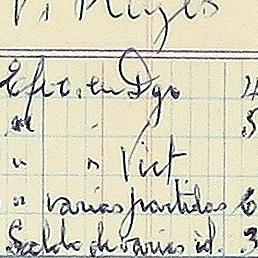 Efec. en Dgo 4
" " 5
" " Vict
" varias partidas 6
Saldo de varias id. 3